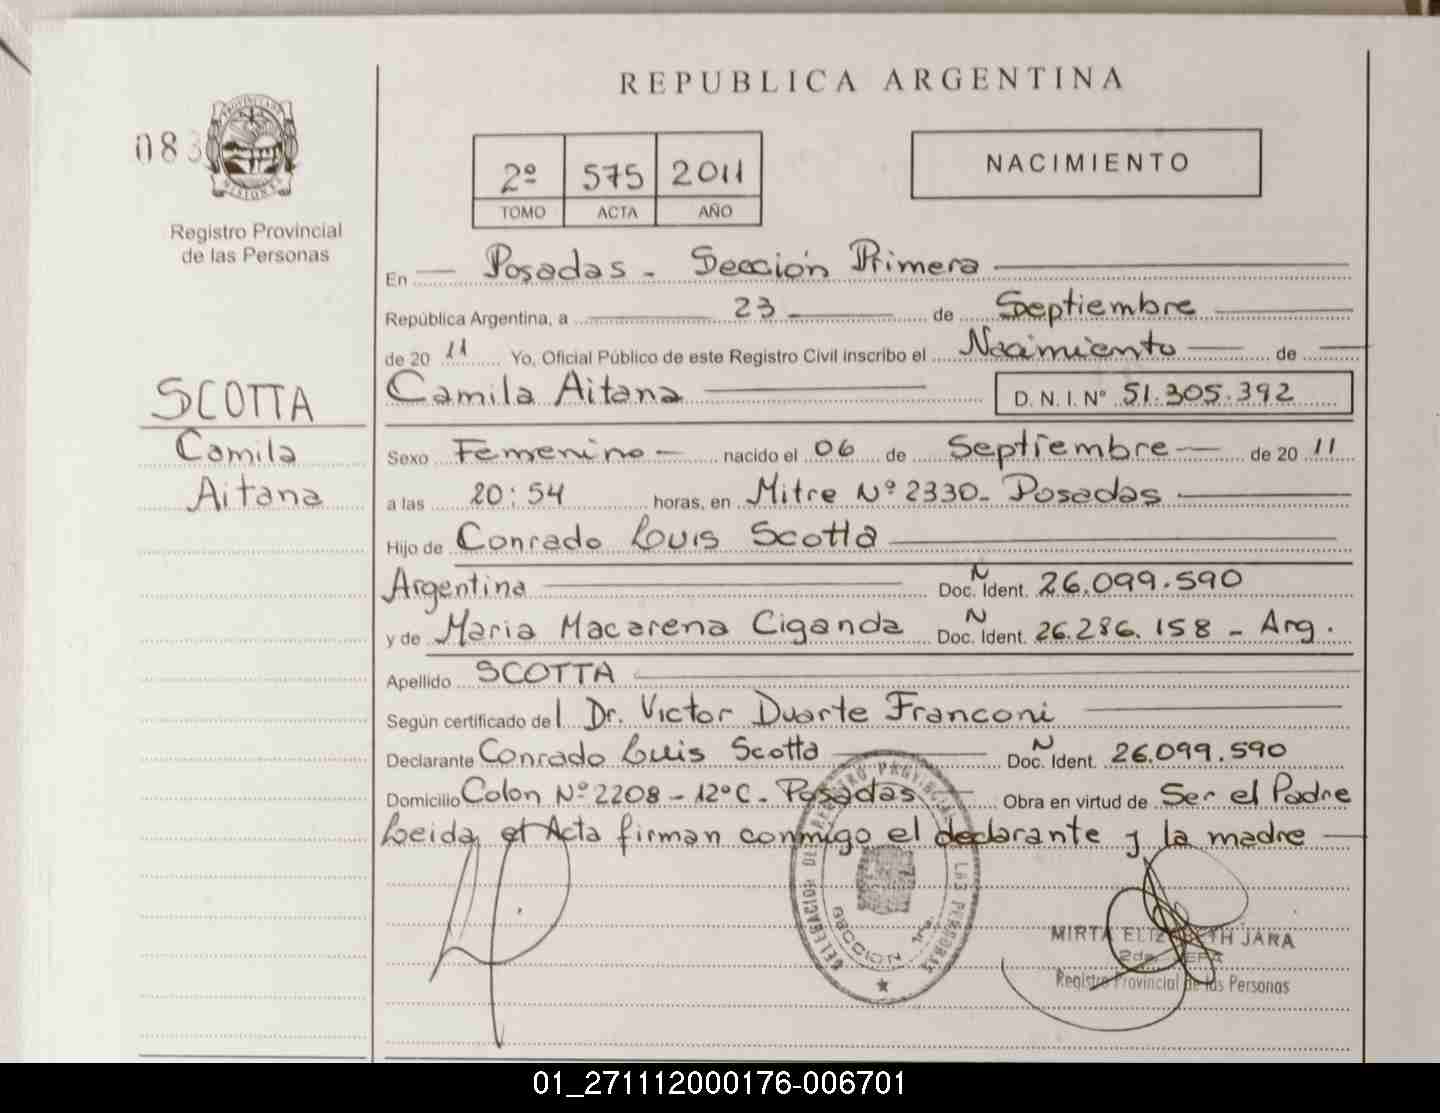 REPUBLICA ARGENTINA
083
PROVINCIA DE
MISIONES
Registro Provincial
de las Personas
2º 575 2011
TOMO ACTA AÑO
NACIMIENTO
En Posadas - Sección Primera
República Argentina, a 23 de Septiembre
de 20 11 Yo, Oficial Público de este Registro Civil inscribo el Nacimiento de
Camila Aitana D. N. I. Nº 51.305.392
SCOTTA
Camila
Aitana
Sexo Femenino nacido el 06 de Septiembre de 20 11
a las 20:54 horas, en Mitre Nº 2330 - Posadas
Hijo de Conrado Luis Scotta
Argentina Doc. N Ident. 26.099.590
y de Maria Macarena Ciganda Doc. N Ident. 26.286.158 - Arg.
Apellido SCOTTA
Según certificado del Dr. Victor Duarte Franconi
Declarante Conrado Luis Scotta Doc. N Ident. 26.099.590
Domicilio Colon Nº 2208 - 12º C - Posadas Obra en virtud de Ser el Padre
Leida el Acta firman conmigo el declarante y la madre
DELEGACION DEL REGISTRO PROVINCIAL DE LAS PERSONAS
SECCION 1ra.
MIRTA ELIZABETH JARA
2da. JEFA
Registro Provincial de las Personas
01_271112000176-006701